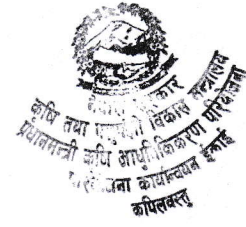 नेपाल सरकार
कृषि तथा पशुपन्छी विकास मन्त्रालय
प्रधानमन्त्री कृषि आधुनिकिकरण परियोजना
परियोजना कार्यान्वयन ईकाई
कपिलवस्तु